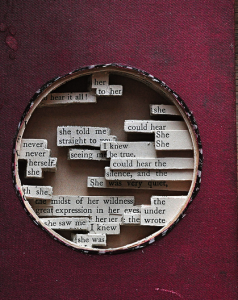 her
to her
hear it all!
she
she told me
could hear
straight to
She
never
I knew
She
never
seeing
be true.
herself.
could hear the
she
silence, and the
She was very quiet,
she
midst of her wildness
the
great expression in her eyes
under
she saw me
the
wrote
I knew
she was